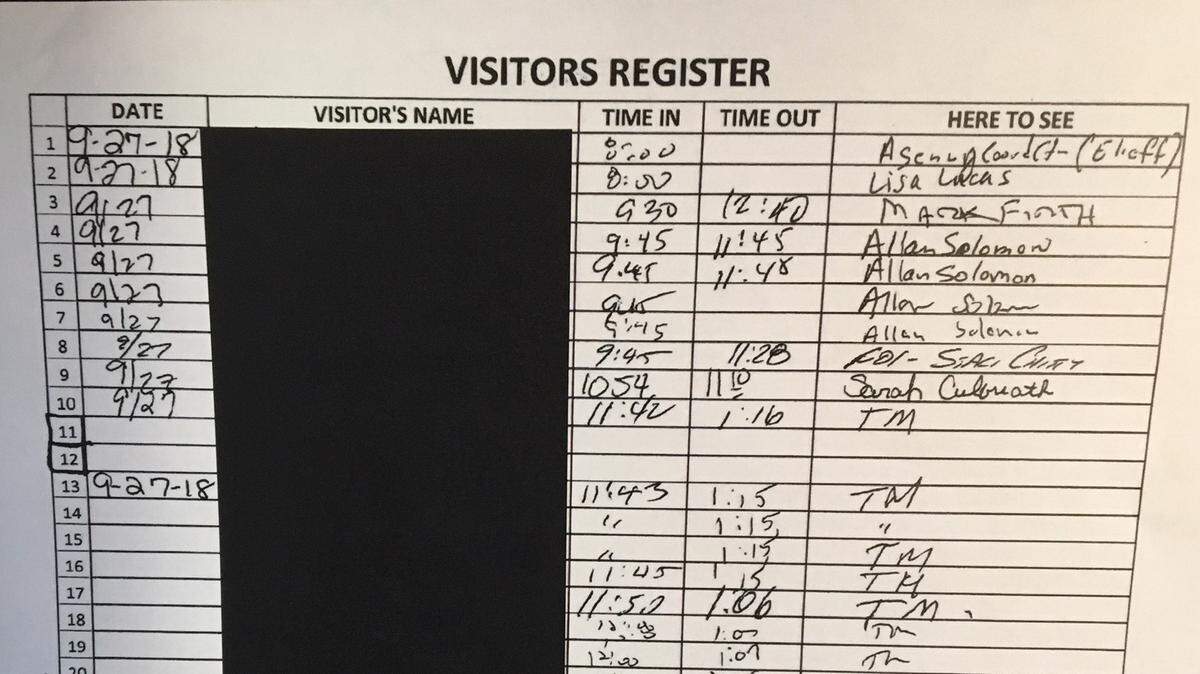 VISITORS REGISTER
DATE VISITOR'S NAME TIME IN TIME OUT HERE TO SEE
1 9-27-18 8:00
2 9-27-18 8:00 Lisa Lucas
3 9/27 9 30 12:40 MARK FIRTH
4 9/27 9:45 11:45 Allan Solomon
5 9/27 9:45 11:45 Allan Solomon
6 9/27 9:45 Allan
7 9/27 9:45 Allan Solomon
8 9/27 9:45 11:28
9 9/27 1054 11 10 Sarah Culbreath
10 9/27 11:42 1:16 TM
11
12
13 9-27-18 11:43 1:15 TM
14 " 1:15 "
15 " 1:15 TM
16 11:45 1 15 TM
17 11:50 1:06 TM
18 TM
19 12:00 1:07 TM
20